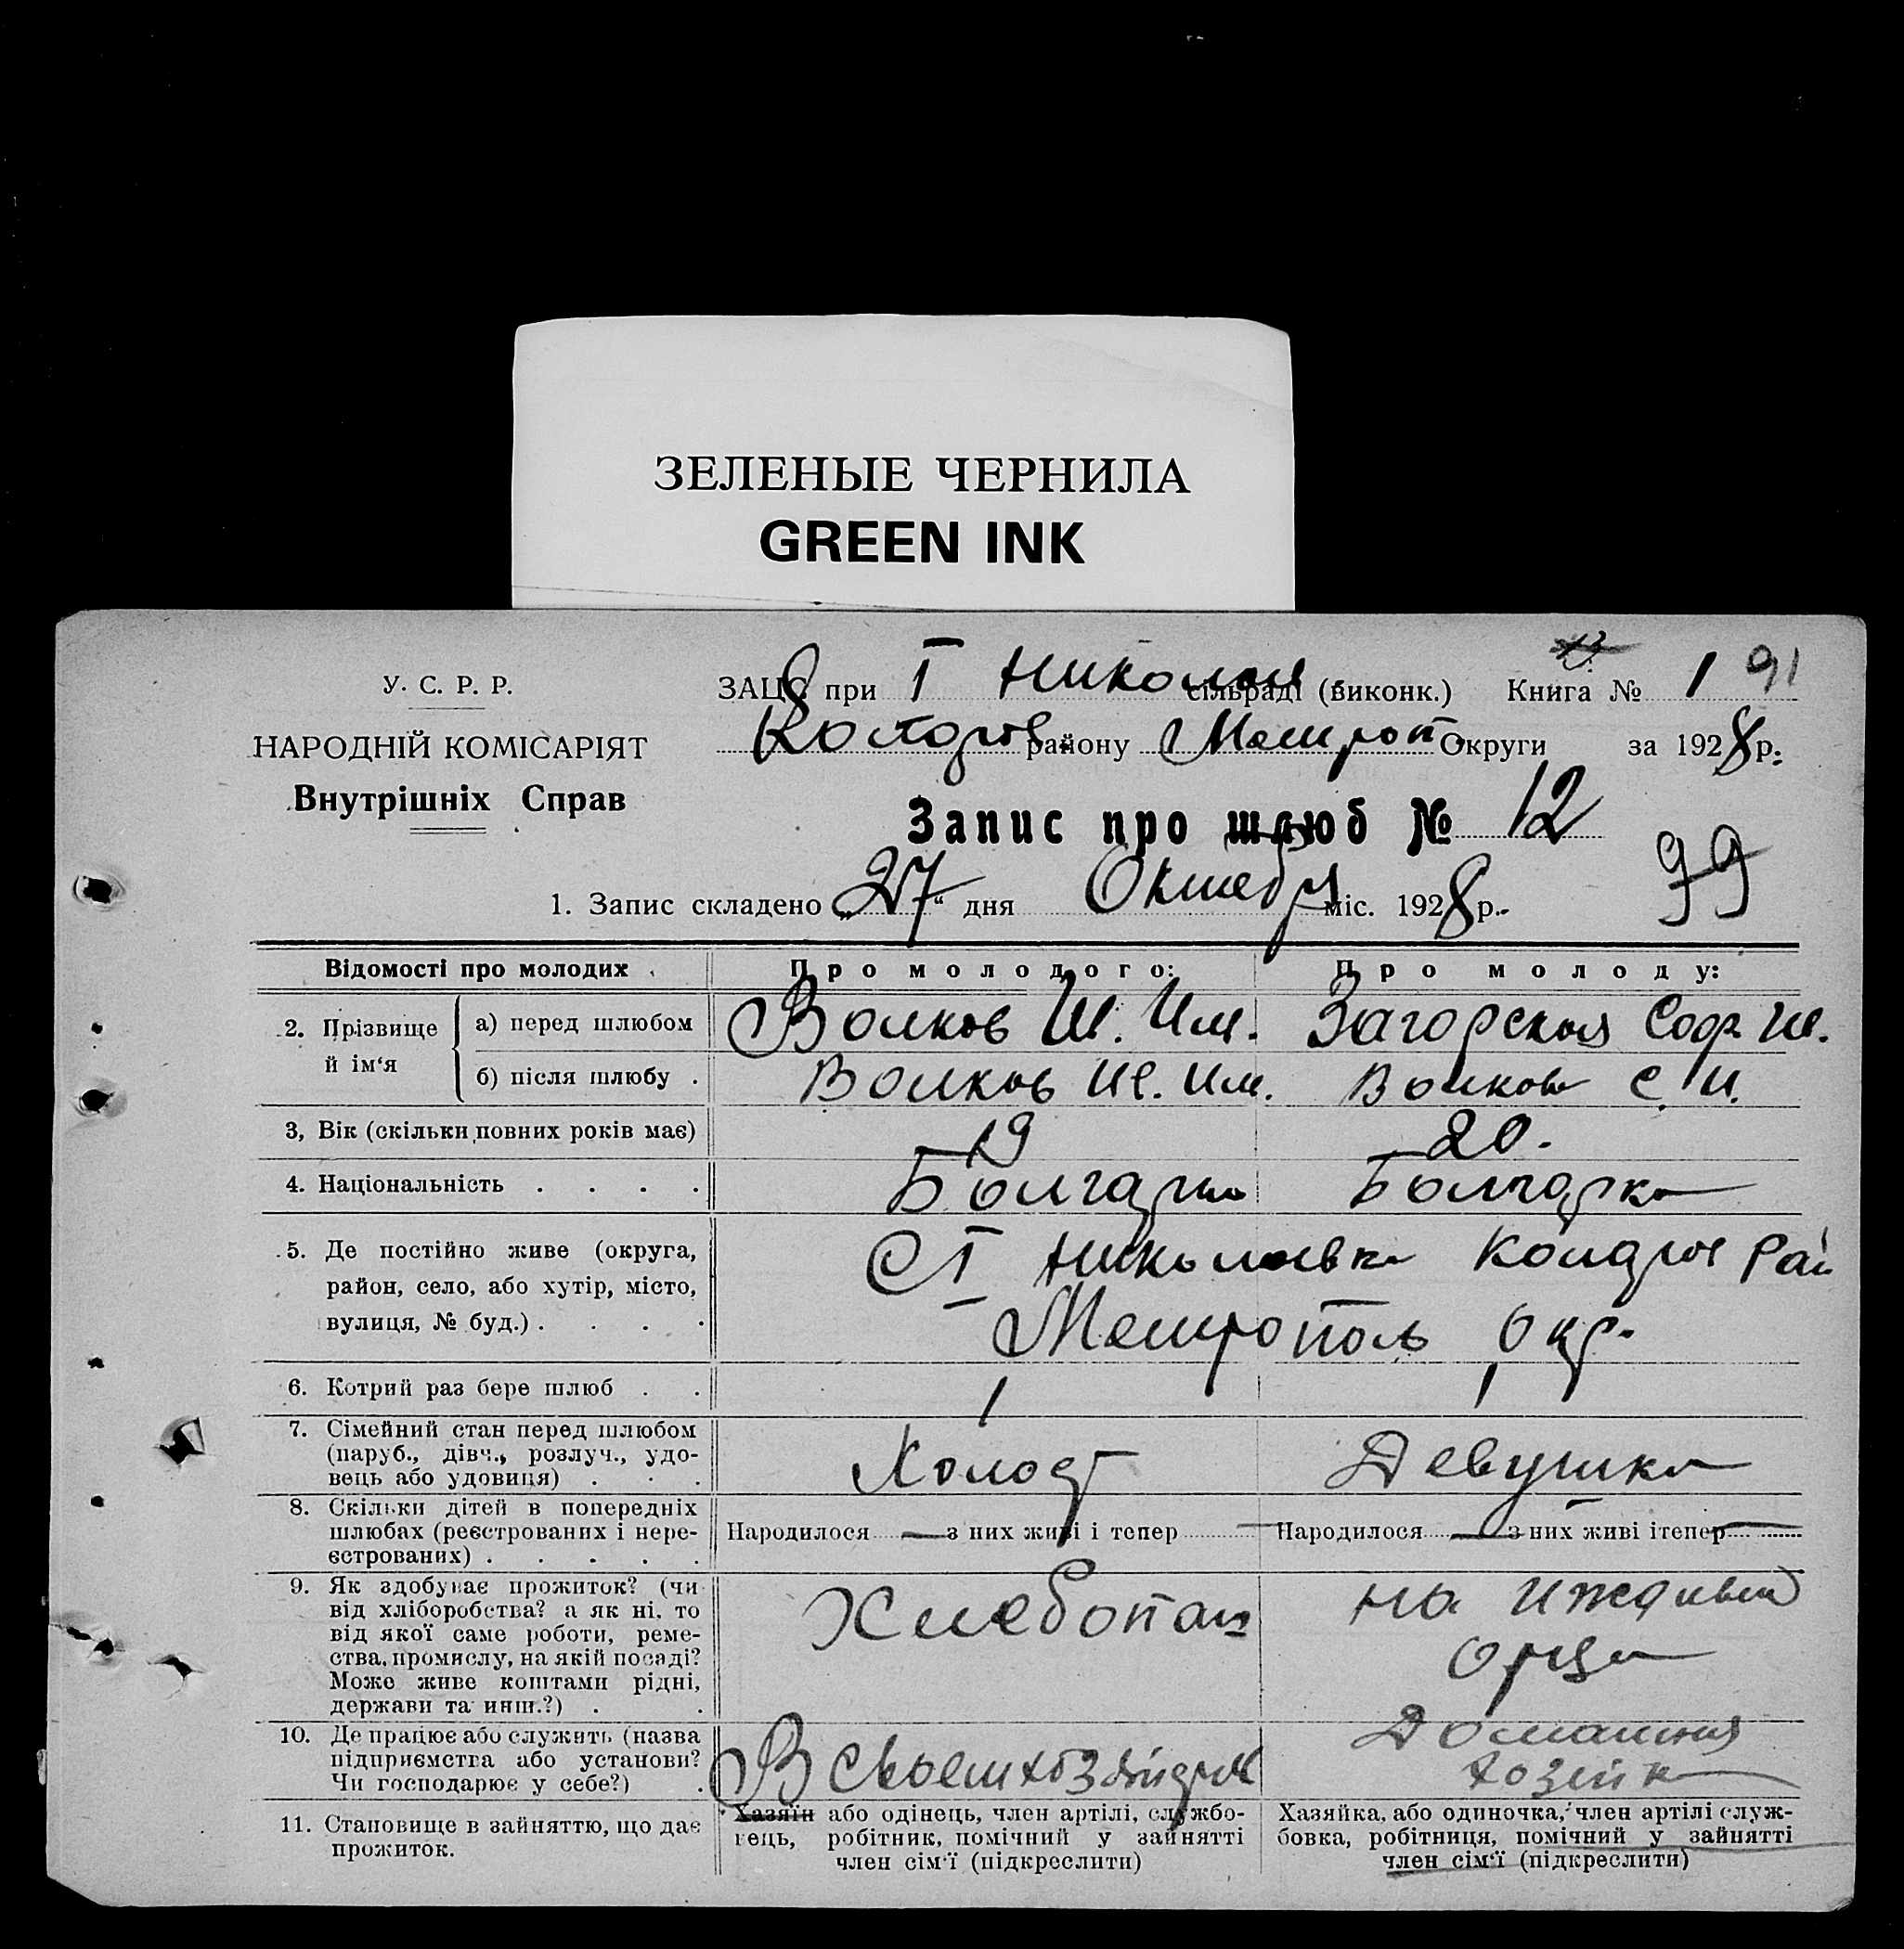 ЗЕЛЕНЫЕ ЧЕРНИЛА
GREEN INK
У. С. Р. Р.
НАРОДНІЙ КОМІСАРІЯТ
Внутрішніх Справ
ЗАЦС при I Николаи. сільраді (виконк.) Книга № 1 91
району Мелитоп. Округи за 1928 р.
Запис про шлюб № 12
99
1. Запис складено „27“ дня Октября міс. 1928 р.
Відомості про молодих Про молодого: Про молоду:
2. Прізвище й ім‘я
а) перед шлюбом Волков Загорская
б) після шлюбу . Волков Волкова С. И.
3, Вік (скільки повних років має) 19 20.
4. Національність . . . . Болгарин Болгарка
5. Де постійно живе (округа,
район, село, або хутір, місто,
вулиця, № буд.) . . . .
С I Николаевка Рай
Мелитополь Окр.
6. Котрий раз бере шлюб . . 1 1
7. Сімейний стан перед шлюбом
(паруб., дівч., розлуч., удо-
вець або удовиця) . . .
Холост Девушка
8. Скільки дітей в попередніх
шлюбах (реєстрованих і нере-
єстрованих) . . . . .
Народилося — з них живі і тепер — Народилося — з них живі і тепер —
9. Як здобуває прожиток? (чи
від хліборобства? а як ні, то
від якої саме роботи, реме-
ства, промислу, на якій посаді?
Може живе коштами рідні,
держави та инш.?) . .
Хлебопаш на иждивен
Отца
10. Де працює або служить (назва
підприємства або установи?
Чи господарює у себе?) .
В своем хозяйстве Домашняя
хозяйка
11. Становище в зайняттю, що дає
прожиток.
Хазяїн або одінець, член артілі, службо-
вець, робітник, помічний у зайнятті
член сім‘ї (підкреслити)
Хазяйка, або одиночка, член артілі служ-
бовка, робітниця, помічний у зайнятті
член сім‘ї (підкреслити)